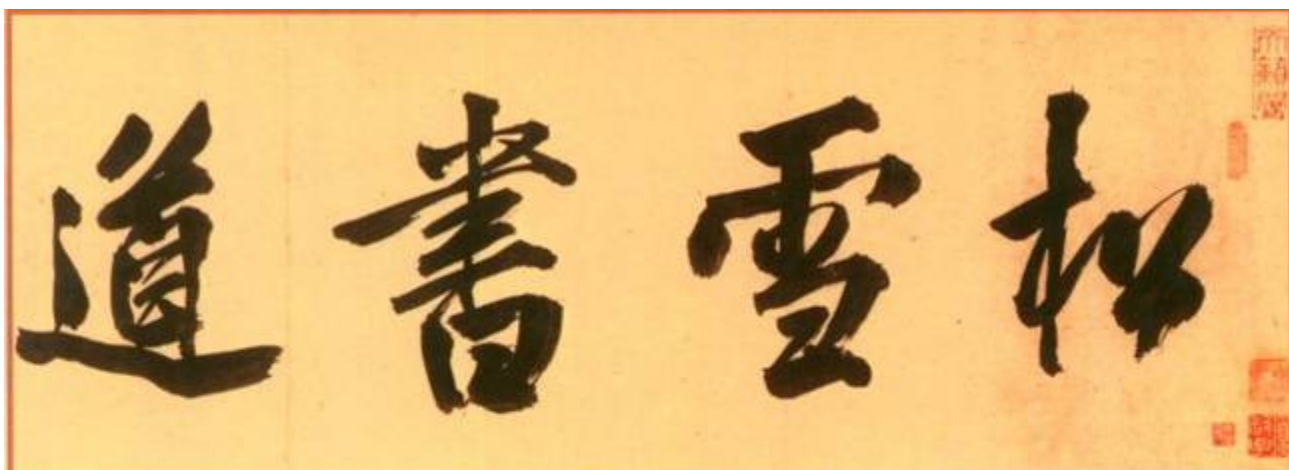 松雪書道